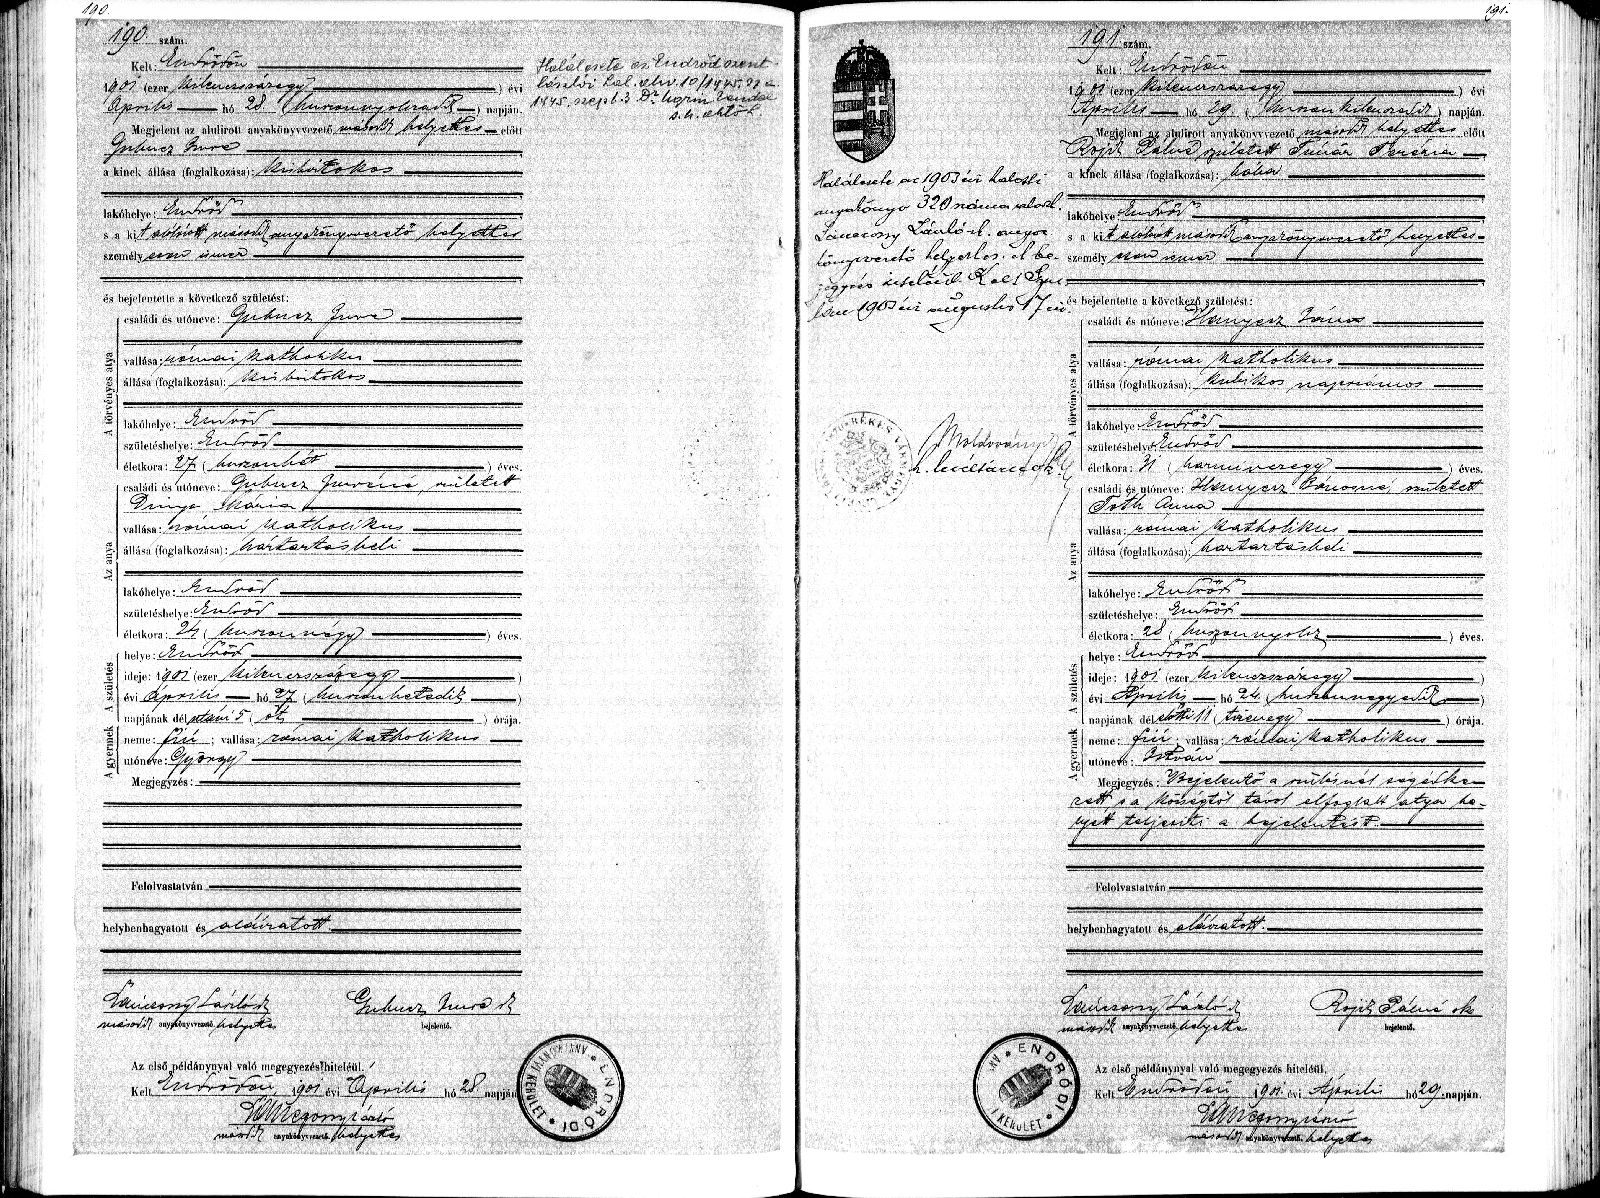 190.
190. szám.
Kelt: Endrődön
1901 (ezer kilencszázegy) évi
Április hó 28. (huszonnyolcadik) napján.
Megjelent az alulirott anyakönyvvezető második helyettes előtt
Gubucz Imre
a kinek állása (foglalkozása): kisbirtokos
lakóhelye: Endrőd
s a kit alólirott második anyakönyvvezető helyettes
személyesen ismer
és bejelentette a következő születést:
A törvényes atya
családi és utóneve: Gubucz Imre
vallása: római katholikus
állása (foglalkozása): kisbirtokos
lakóhelye: Endrőd
születéshelye: Endrőd
életkora: 27 (huszonhét) éves.
Az anya
családi és utóneve: Gubucz Imréné, született
Dinya Mária
vallása: római katholikus
állása (foglalkozása): háztartásbeli
lakóhelye: Endrőd
születéshelye: Endrőd
életkora: 24 (huszonnégy) éves.
A születés
helye: Endrőd
ideje: 1901 (ezer kilencszázegy)
évi április hó 27 (huszonhetedik)
napjának délutáni 5 (öt) órája.
A gyermek
neme: fiú; vallása: római katholikus
utóneve: György
Megjegyzés:
Felolvastatván
helybenhagyatott és aláiratott.
Láncsony László
Gubucz Imre sk
második anyakönyvvezető helyettes
bejelentő.
Az első példánynyal való megegyezés hiteléül.
Kelt Endrődön 1901. évi Április hó 28 napján
második anyakönyvvezető helyettes
ENDRŐDI
Halálesete az Endrőd szent
lászlói hal. akv. 10/1945.
1945. szept. 3 Dr.
s. k. aktö
191.
191 szám.
Kelt: Endrődön
1901 (ezer kilencszázegy) évi
Április hó 29. (huszonkilencedik) napján.
Megjelent az alulirott anyakönyvvezető második helyettes előtt
Rojik Pálné született Timár Terézia
a kinek állása (foglalkozása): bába
lakóhelye: Endrőd
s a kit alólirott második anyakönyvvezető helyettes
személyesen ismer
és bejelentette a következő születést:
A törvényes atya
családi és utóneve: Hanyecz János
vallása: római katholikus
állása (foglalkozása): kubikos napszámos
lakóhelye: Endrőd
születéshelye: Endrőd
életkora: 31 (harminczegy) éves.
Az anya
családi és utóneve: Hanyecz Jánosné, született
Tóth Anna
vallása: római katholikus
állása (foglalkozása): háztartásbeli
lakóhelye: Endrőd
születéshelye: Endrőd
életkora: 28 (huszonnyolcz) éves.
A születés
helye: Endrőd
ideje: 1901 (ezer kilencszázegy)
évi Április hó 24. (huszonnegyedik)
napjának délelőtti 11 (tizenegy) órája.
A gyermek
neme: fiú; vallása: római katholikus
utóneve: István
Megjegyzés: Bejelentő a szülésnél segédke-
zett, s a községtől távol elfoglalt atya he-
lyett teljesiti a bejelentést.
Felolvastatván
helybenhagyatott és aláiratott.
Láncsony László
Rojik Pálné sk
második anyakönyvvezető helyettes
bejelentő.
Az első példánynyal való megegyezés hiteléül.
Kelt Endrődön 1901. évi Április hó 29. napján.
második anyakönyvvezető helyettes
ENDRŐDI
I KERÜLET
Halálesete az 1903 évi halotti
anyakönyv 320 száma alatt.
László s.k. anya-
könyvvezető helyettes. el be-
jegyzés hiteléül. Kelt
1903 évi augusztus 17 én.
BÉKÉS
h. levéltárnok